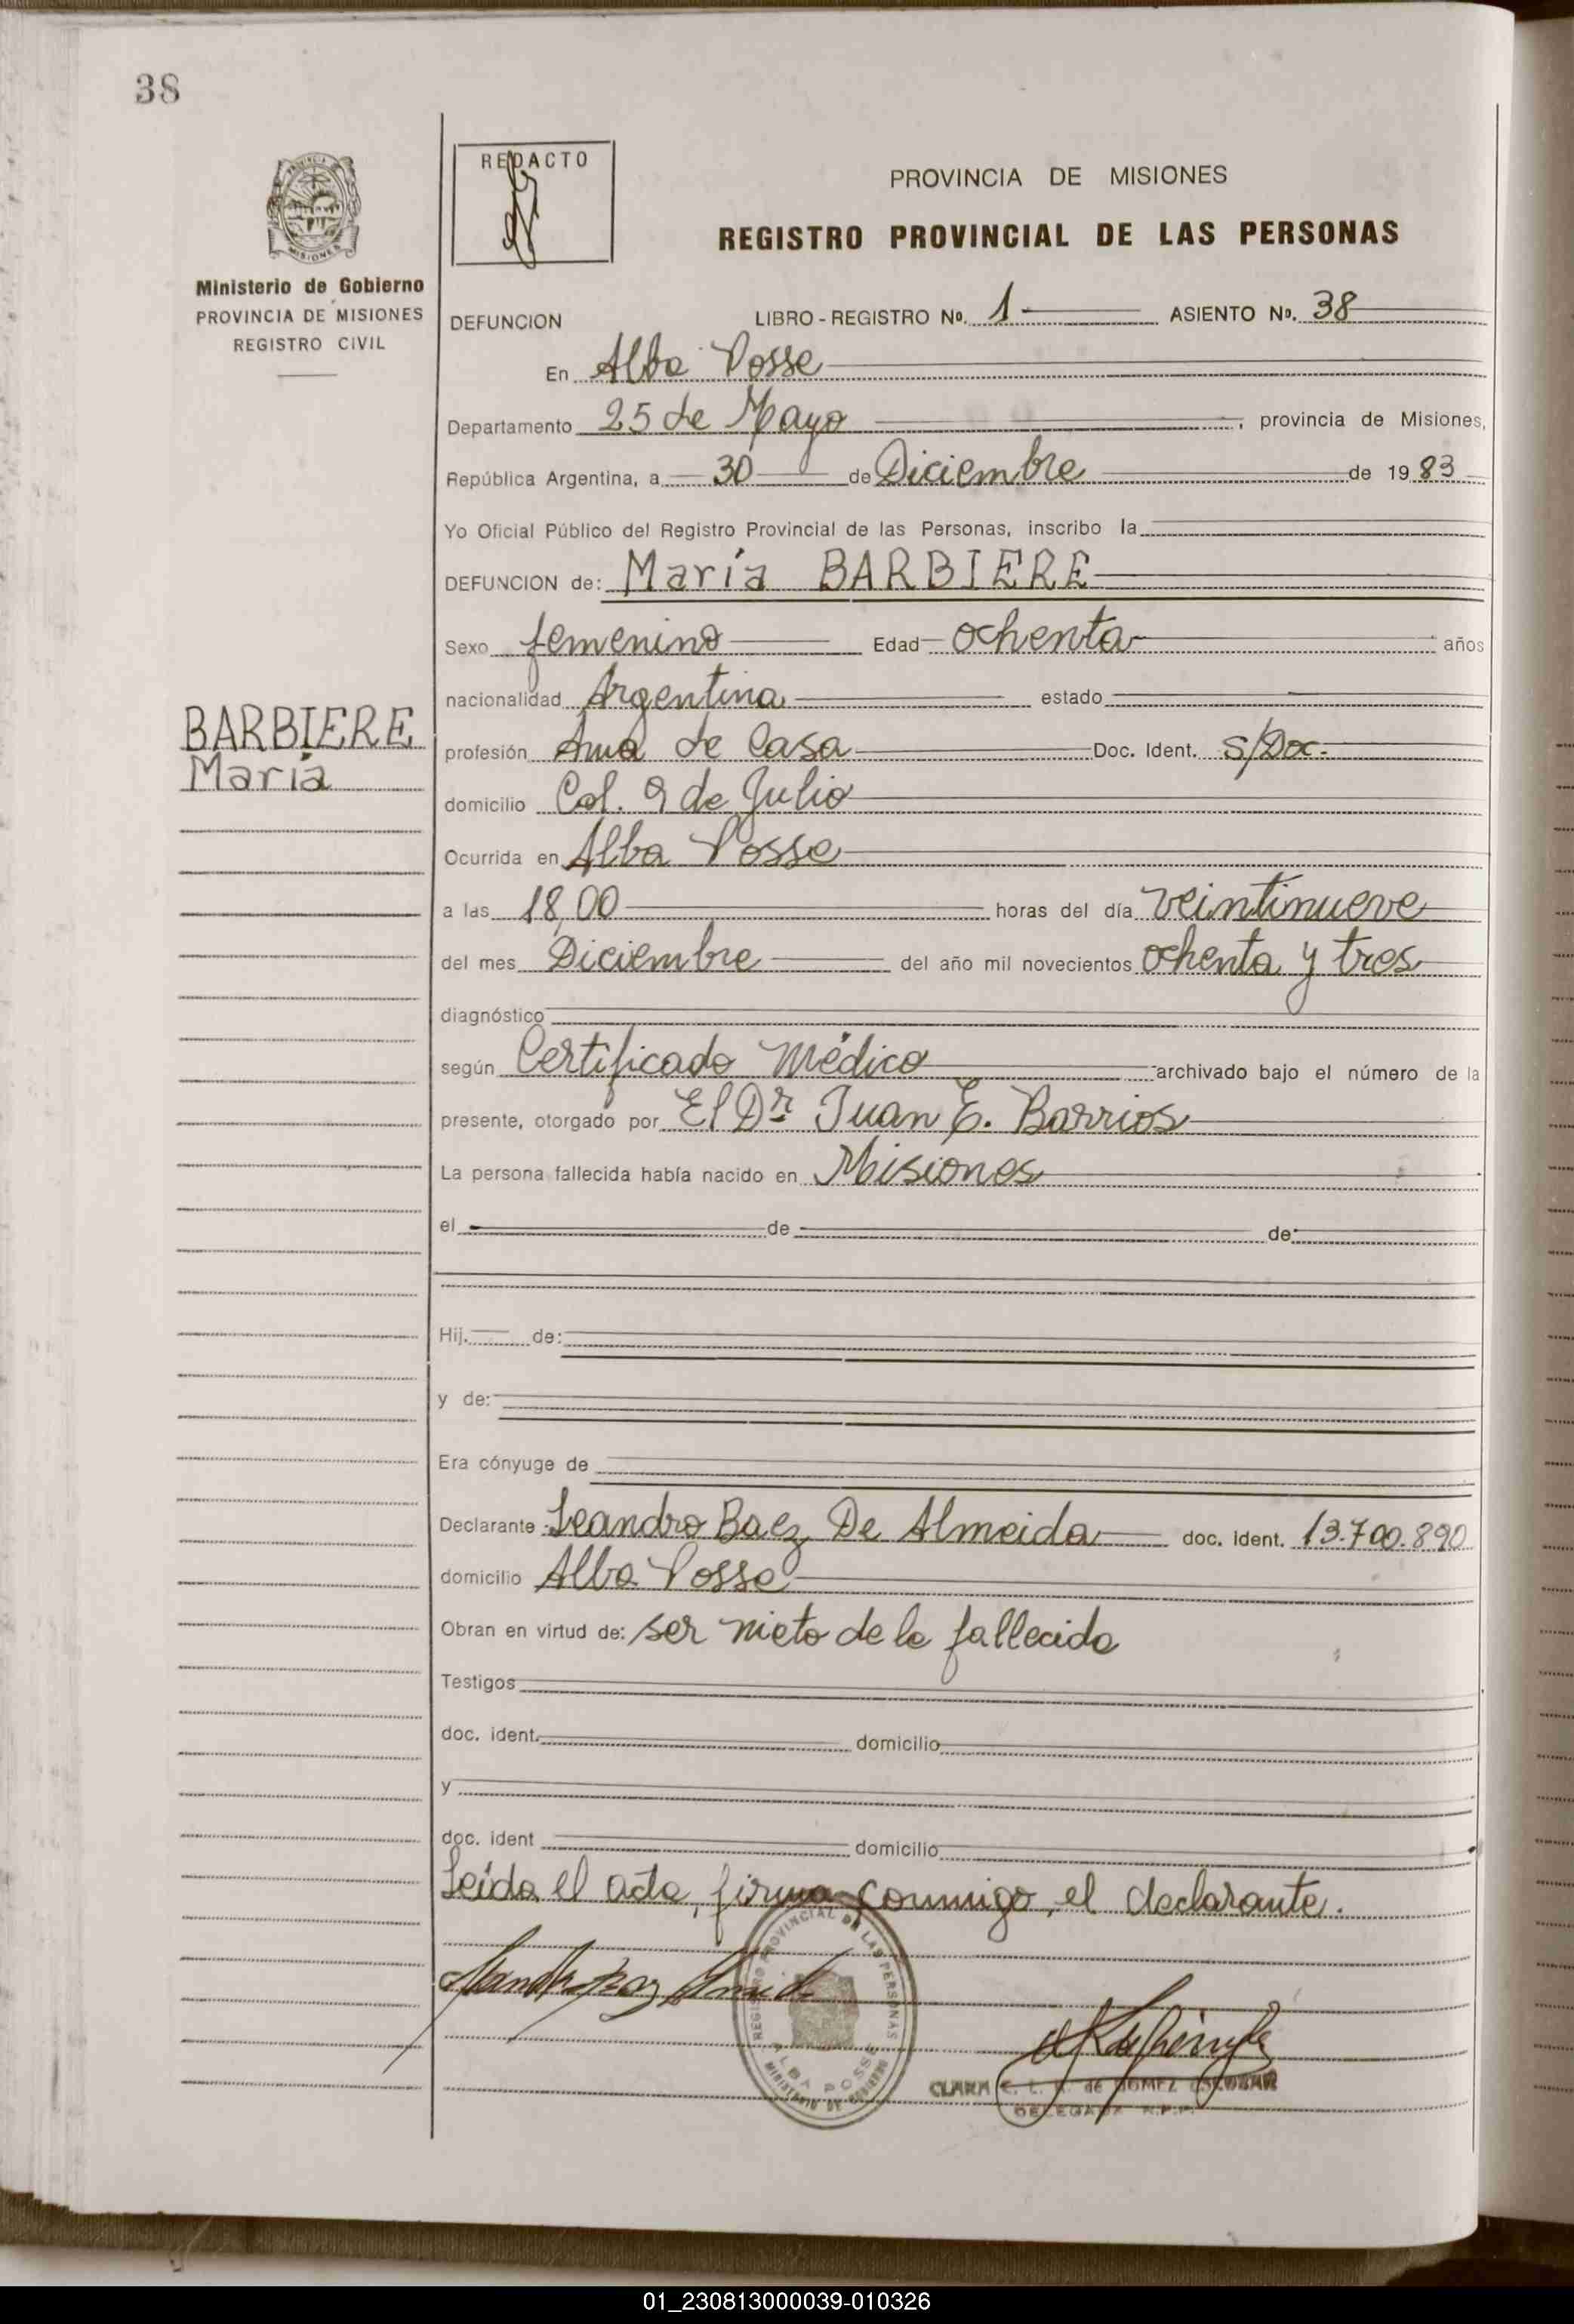 38
REDACTO
PROVINCIA DE MISIONES
REGISTRO PROVINCIAL DE LAS PERSONAS
Ministerio de Gobierno
PROVINCIA DE MISIONES
REGISTRO CIVIL
DEFUNCION LIBRO - REGISTRO Nº. 1 ASIENTO Nº. 38
En Alba Posse
Departamento 25 de Mayo, provincia de Misiones,
República Argentina, a 30 de Diciembre de 19 83
Yo Oficial Público del Registro Provincial de las Personas, inscribo la
DEFUNCION de: María BARBIERE
Sexo femenino Edad ochenta años
nacionalidad Argentina estado
BARBIERE
María
profesión Ama de Casa Doc. Ident. S/Doc.
domicilio Col. 9 de Julio
Ocurrida en Alba Posse
a las 18,00 horas del día veintinueve
del mes Diciembre del año mil novecientos ochenta y tres
diagnóstico
según Certificado Médico archivado bajo el número de la
presente, otorgado por El Dr Juan E. Barrios
La persona fallecida había nacido en Misiones
el de de
Hij. de:
y de:
Era cónyuge de
Declarante Leandro Baez De Almeida doc. ident. 13.700.890
domicilio Alba Posse
Obran en virtud de: ser nieto de la fallecida
Testigos
doc. ident. domicilio
y
doc. ident domicilio
Leída el acta, firma conmigo, el declarante.
REGISTRO PROVINCIAL DE LAS PERSONAS
ALBA POSSE
MINISTERIO DE GOBIERNO
CLARA de GOMEZ ESCOBAR
DELEGADA R.P.P.
01_230813000039-010326